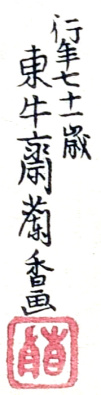 行年七十一歳
東牛齋蘭香画